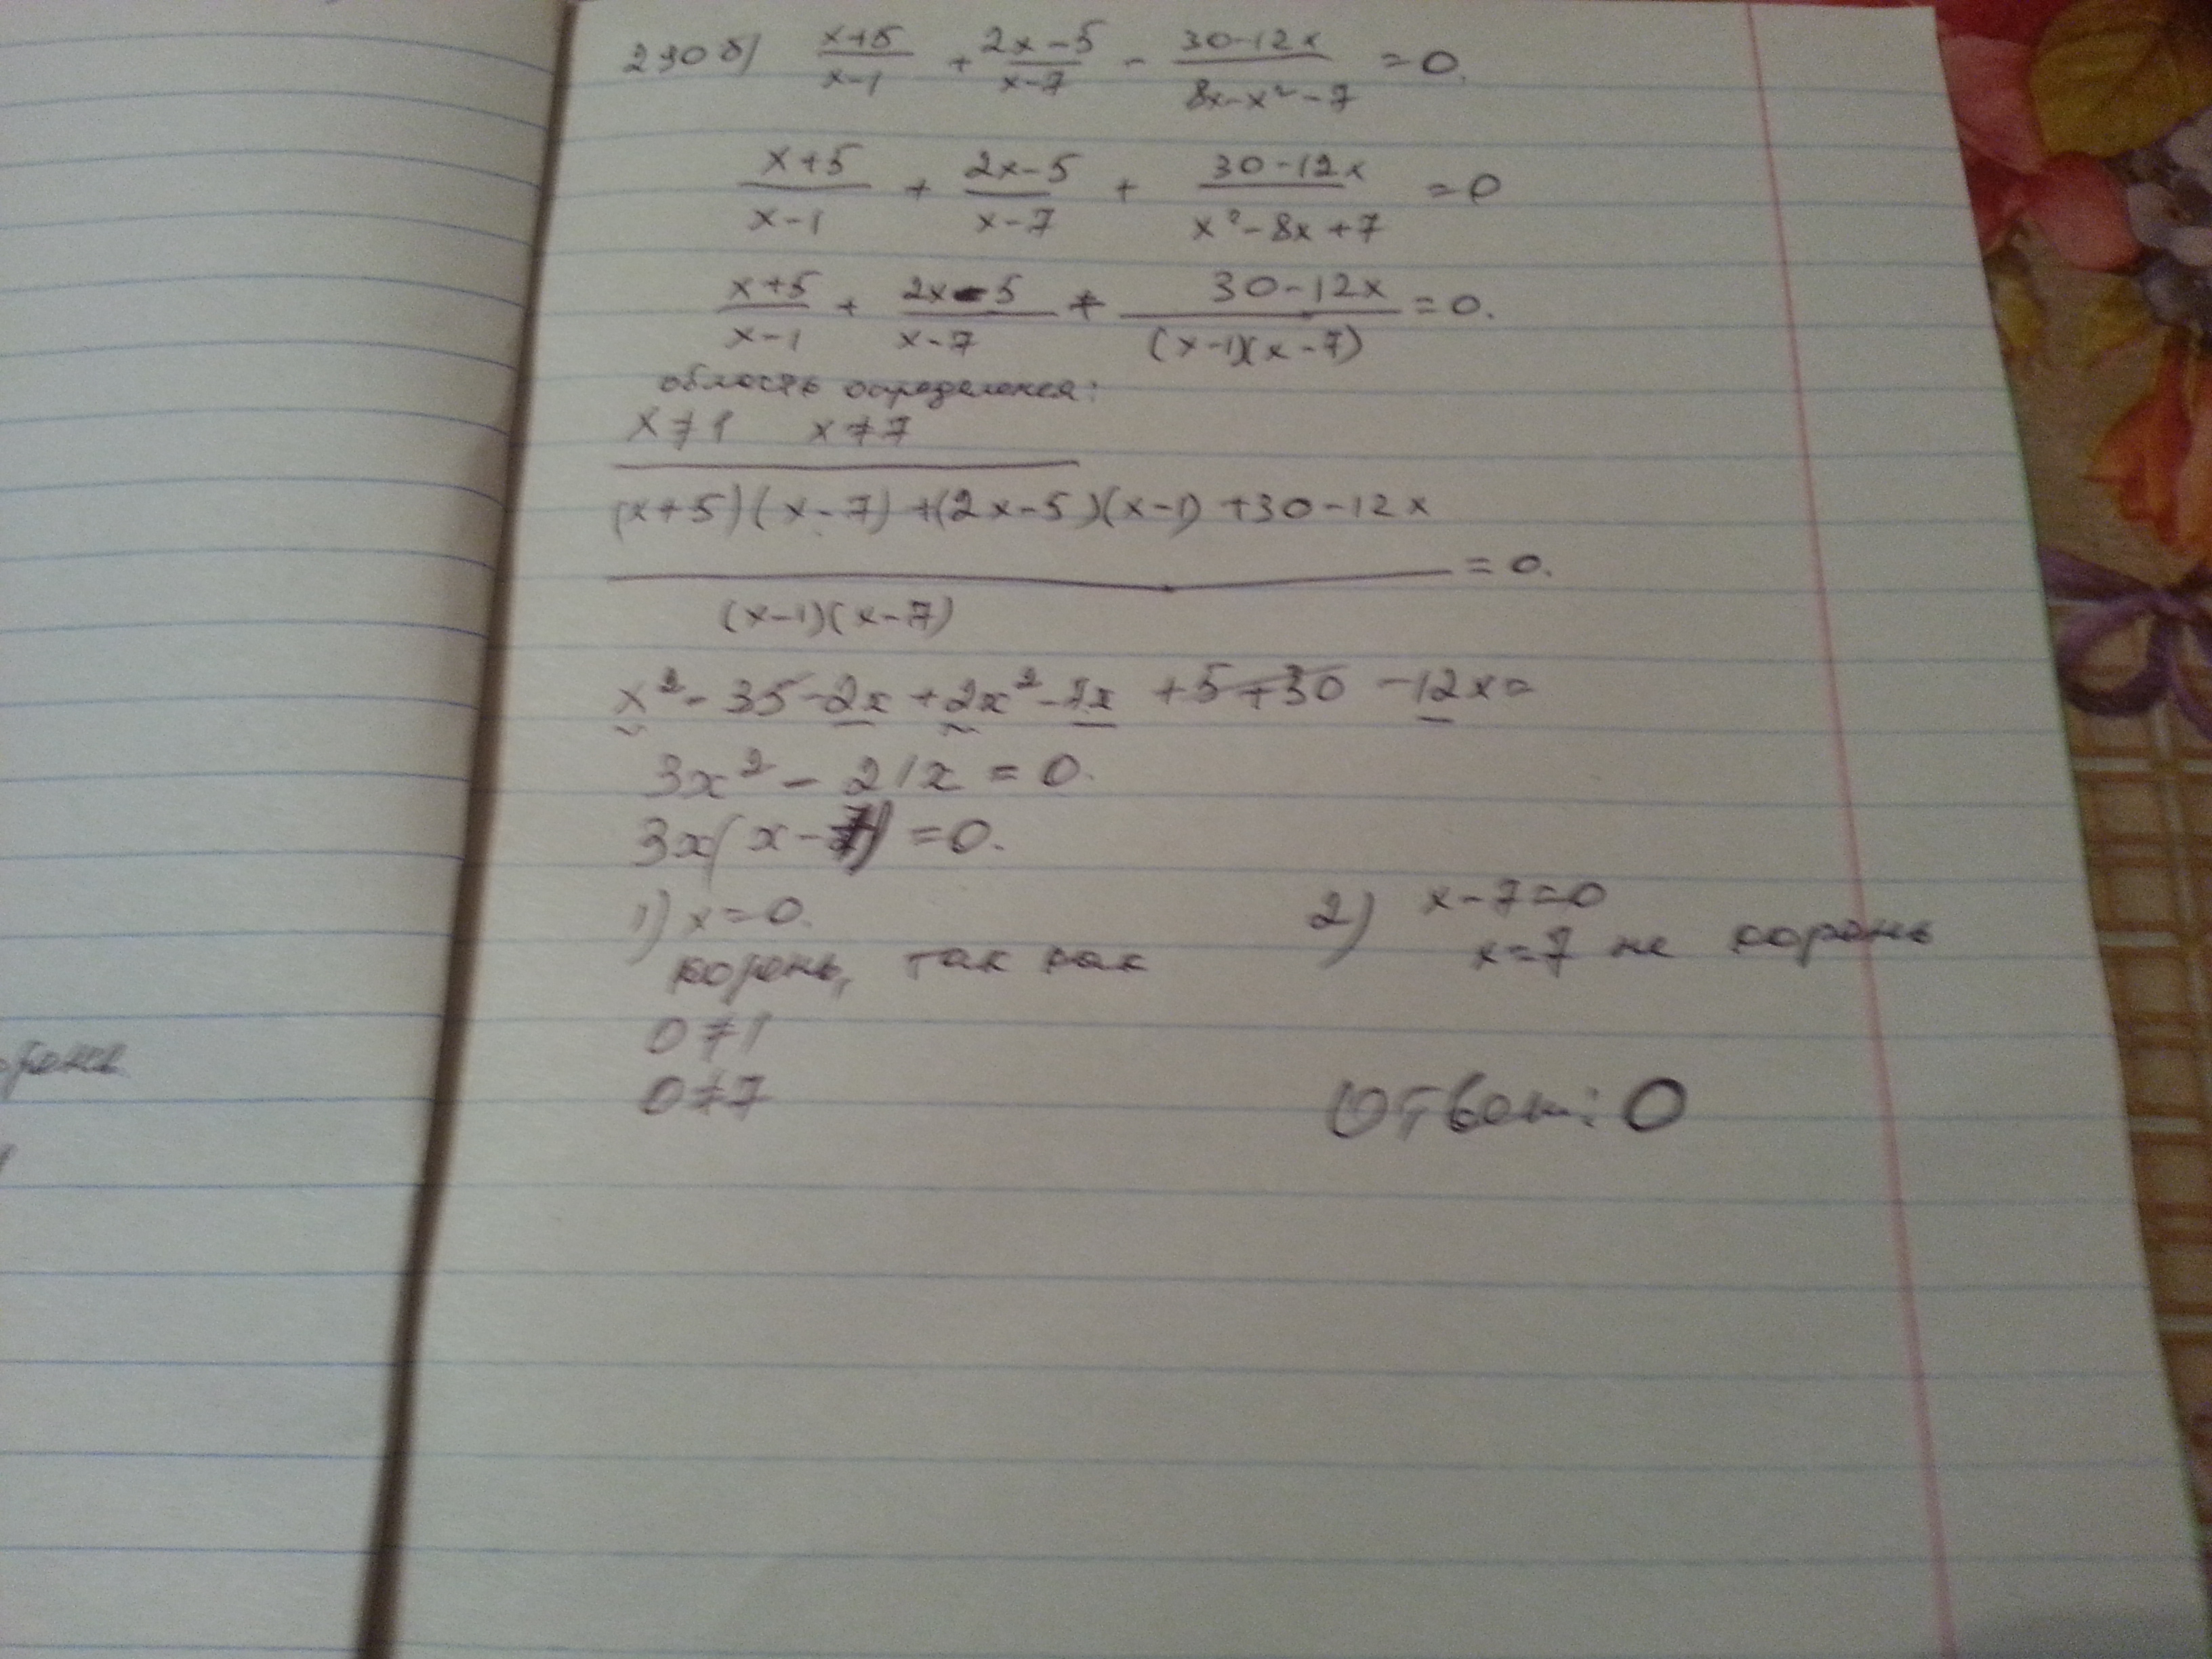 230 б) (x+5)/(x-1) + (2x-5)/(x-7) - (30-12x)/(8x-x²-7) = 0.
(x+5)/(x-1) + (2x-5)/(x-7) + (30-12x)/(x²-8x+7) = 0
(x+5)/(x-1) + (2x-5)/(x-7) + (30-12x)/((x-1)(x-7)) = 0.
область определения:
x≠1 x≠7
(x+5)(x-7)+(2x-5)(x-1)+30-12x
= 0.
(x-1)(x-7)
x²-35-2x+2x²-7x+5+30-12x=
3x²-21x=0.
3x(x-7)=0.
1) x=0.
корень, так как
0≠1
0≠7
2) x-7=0
x=7 не корень
Ответ: 0